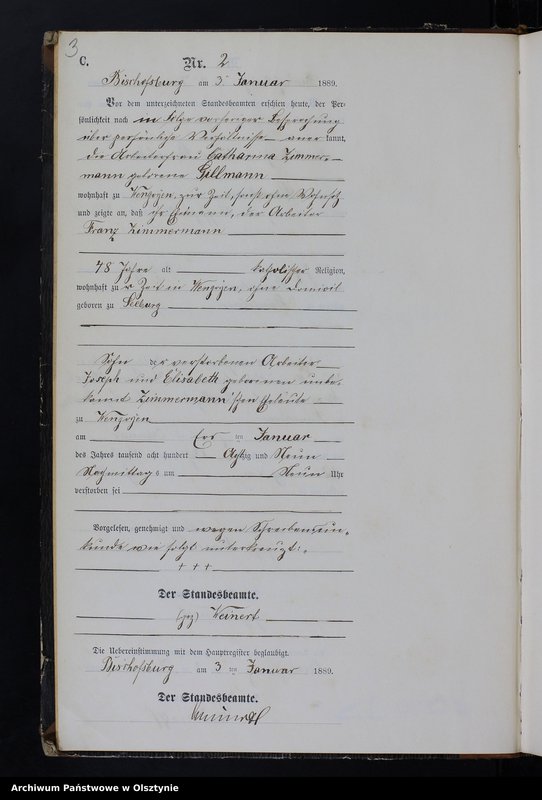 3
C.
Nr. 2
Bischofsburg am 3 Januar 1889.
Vor dem unterzeichneten Standesbeamten erschien heute, der Per-
sönlichkeit nach in Folge vorheriger Besprechung
über persönliche Verhältnisse anerkannt,
die Arbeiterfrau Catharina Zimmer-
mann geborene Gillmann
wohnhaft zu zur Zeit, sonst ohne Wohnsitz
und zeigte an, daß ihr Ehemann, der Arbeiter
Franz Zimmermann
48 Jahre alt katholischer Religion,
wohnhaft zu zur Zeit in ohne Domicil
geboren zu Seeburg
Sohn der verstorbenen Arbeiter
Joseph und Elisabeth geborenen unbe-
kannt Zimmermann'schen Eheleute
zu
am ten Januar
des Jahres tausend acht hundert Achtzig und Neun
Nachmittags um Neun Uhr
verstorben sei
Vorgelesen, genehmigt und wegen Schreibensun-
kunde wie folgt unterkreuzt:
+ + +
Der Standesbeamte.
(gez) Weinert
Die Uebereinstimmung mit dem Hauptregister beglaubigt.
Bischofsburg am 3 ten Januar 1889.
Der Standesbeamte.
Archiwum Państwowe w Olsztynie